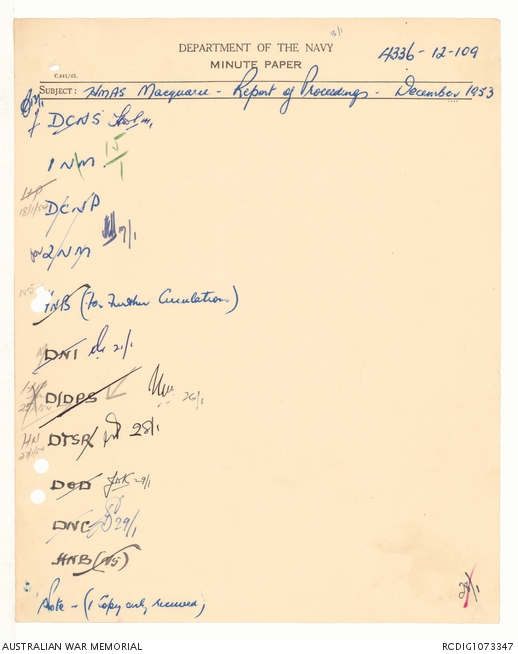 DEPARTMENT OF THE NAVY
4336-12-109
MINUTE PAPER
C.441/45.
SUBJECT: HMAS Macquarie - Report of Proceedings - December 1953
DCNS
1NM 15/1
DCNP
18/1/54
2NM 19/1
1NB (For Further Circulation)
DNI 21/1
D/DPS 26/1
DTSR 28/1
DOD 29/1
DNC 29/1
HNB (NS)
Note - (1 Copy only received)
AUSTRALIAN WAR MEMORIAL
RCDIG1073347